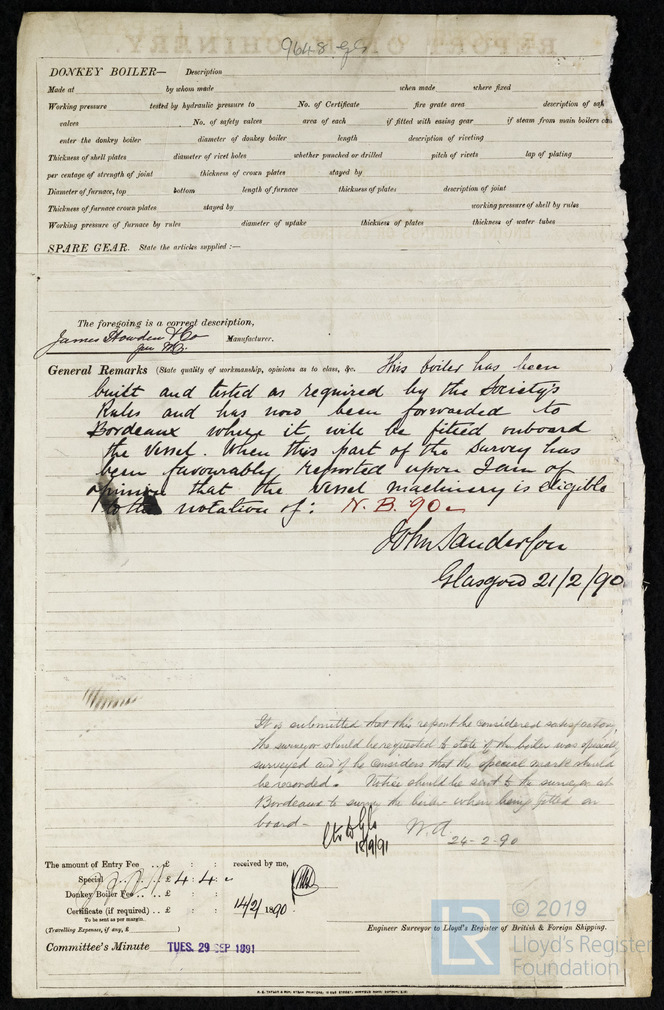 9648 gls
DONKEY BOILER— Description
Made at by whom made when made where fixed
Working pressure tested by hydraulic pressure to No. of Certificate fire grate area description of saf
valves No. of safety valves area of each if fitted with easing gear if steam from main boilers can
enter the donkey boiler diameter of donkey boiler length description of riveting
Thickness of shell plates diameter of rivet holes whether punched or drilled pitch of rivets lap of plating
per centage of strength of joint thickness of crown plates stayed by
Diameter of furnace, top bottom length of furnace thickness of plates description of joint
Thickness of furnace crown plates stayed by working pressure of shell by rules
Working pressure of furnace by rules diameter of uptake thickness of plates thickness of water tubes
SPARE GEAR. State the articles supplied :—
The foregoing is a correct description,
James Howden & Co Manufacturer.
General Remarks (State quality of workmanship, opinions as to class, &c. This boiler has been
built and tested as required by the Society's
Rules and has now been forwarded to
Bordeaux where it will be fitted onboard
the vessel. When this part of the survey has
been favourably reported upon I am of
opinion that the vessel machinery is eligible
to the notation of: N. B. 90
John Sanderson
Glasgow 21/2/90
It is submitted that this report be considered satisfactory,
the surveyor should be requested to state if the boiler was specially
surveyed and if he considers that the special mark should
be recorded. Notice should be sent to the surveyor at
Bordeaux to survey the boiler when being fitted on
board—
W.A.
24-2-90
18/9/91
The amount of Entry Fee . . £ : : received by me,
Special . . £ 4 : 4 :
Donkey Boiler Fee . . £ : :
Certificate (if required) . . £ : : 14/2/ 1890
To be sent as per margin.
(Travelling Expenses, if any, £ )
Engineer Surveyor to Lloyd's Register of British & Foreign Shipping.
Committee's Minute TUES. 29 SEP 1891
LR © 2019
Lloyd's Register
Foundation